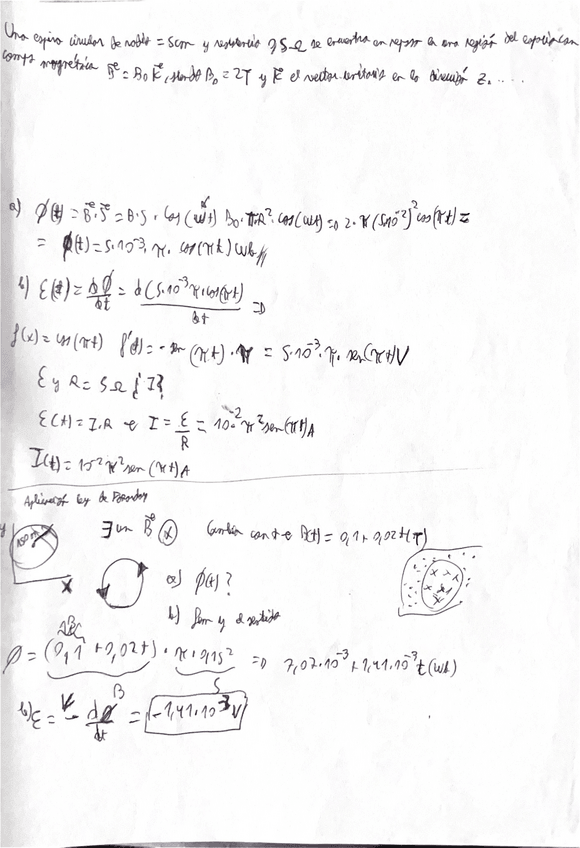 Una espira circular de radio = 5cm y resistencia 5Ω se encuentra en reposo en una región del espacio con
campo magnético B⃗ = B₀ k⃗, siendo B₀ = 2T y k⃗ el vector unitario en la dirección z. ....
a) Φ(t) = B⃗·S⃗ = B·S·cos(wt) B₀·π·R²·cos(wt) => 2·π(5·10⁻²)² cos(πt) =
= Φ(t) = 5·10⁻³·π·cos(πt) Wb //
b) ε(t) = dΦ/dt = d(5·10⁻³π·cos(πt)/dt =>
f(x) = cos(πt) f'(t) = -sen(πt)·π = 5·10⁻³·π·sen(πt)V
ε y R = 5Ω ¿I?
ε(t) = I·R I = ε/R = 10⁻²π²sen(πt)A
I(t) = 10⁻²π²sen(πt)A
Aplicación ley de Faraday
∃ un B⃗ ⊗ Cambia con t B(t) = 0,1 + 0,02t(T)
150 m
x
a) Φ(t)?
b) fem y el sentido
Φ = (0,1 + 0,02t)·π·0,15² => 7,07·10⁻³ + 1,41·10⁻³t (Wb)
S
b) ε = - dΦ/dt = -1,41·10⁻³ V